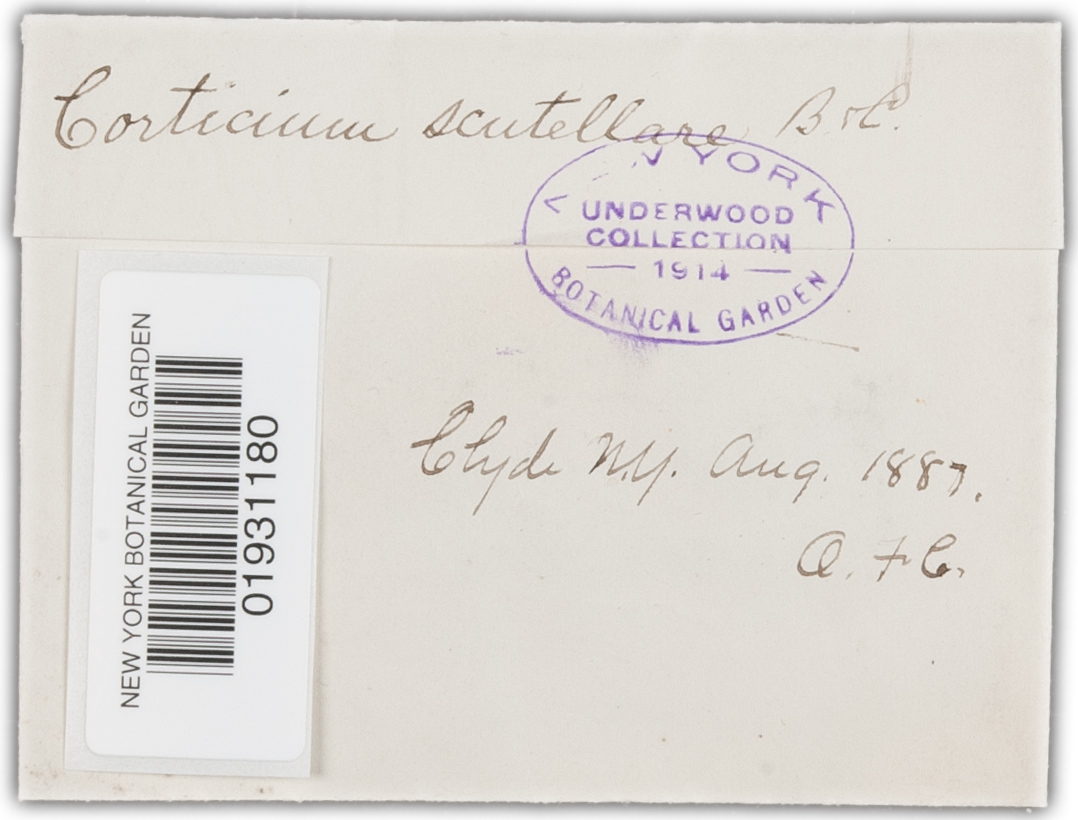 Corticium scutellare B. & C.
NEW YORK
UNDERWOOD
COLLECTION
— 1914 —
BOTANICAL GARDEN
NEW YORK BOTANICAL GARDEN
01931180
Clyde N.Y. Aug. 1887.
O. F. C.